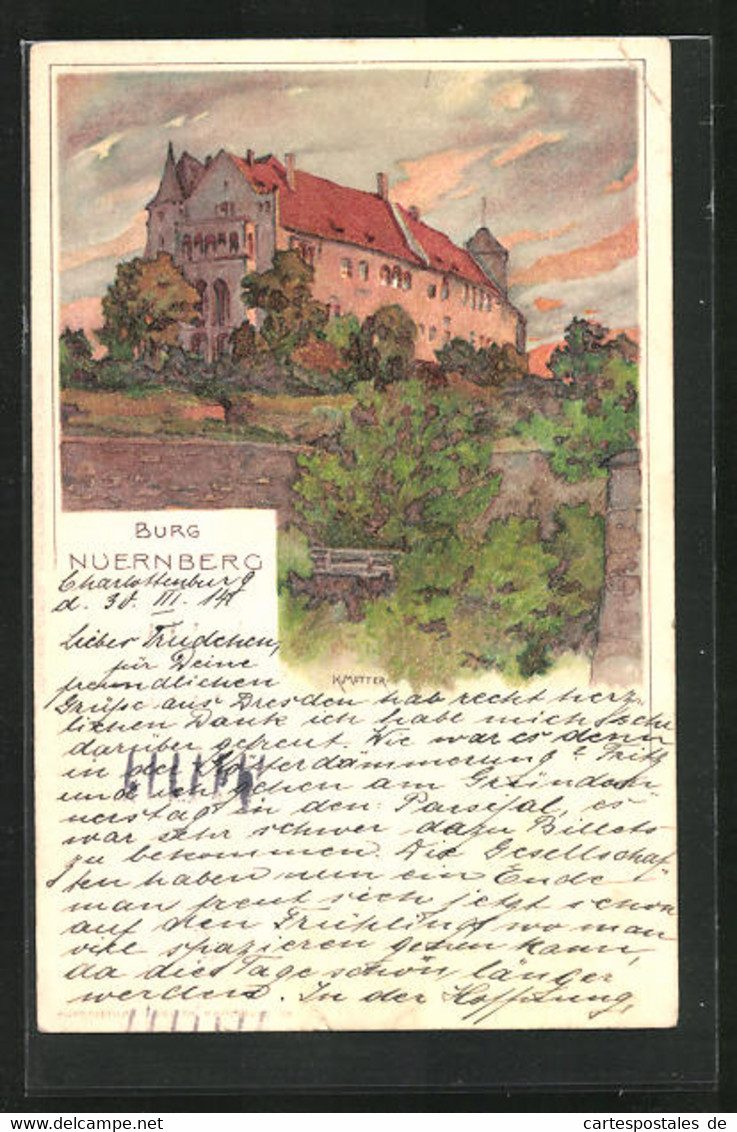 BURG
NUERNBERG
Charlottenburg
d. 30. III. 14
Liebes Trudchen,
für Deine
freundlichen
Grüße aus Dresden hab recht herz-
lichen Dank ich habe mich sehr
darüber gefreut. Wie war es denn
in der Götterdämmerung? Fritz
und ich gehen am Gründon-
nerstag in den Parsifal, es
war sehr schwer dazu Billets
zu bekommen. Die Gesellschaf-
ten haben nun ein Ende
man freut sich jetzt schon
auf den Frühling wo man
viel spazieren gehen kann,
da die Tage schön länger
werden. In der Hoffnung,
K. MUTTER
cartespostales de